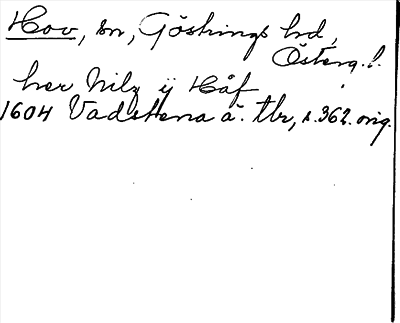 Hov, sn, Göstrings hd,
Österg. l.
her Nilz ij Håf
1604 Vadstena ä. tbr, s. 362. orig.